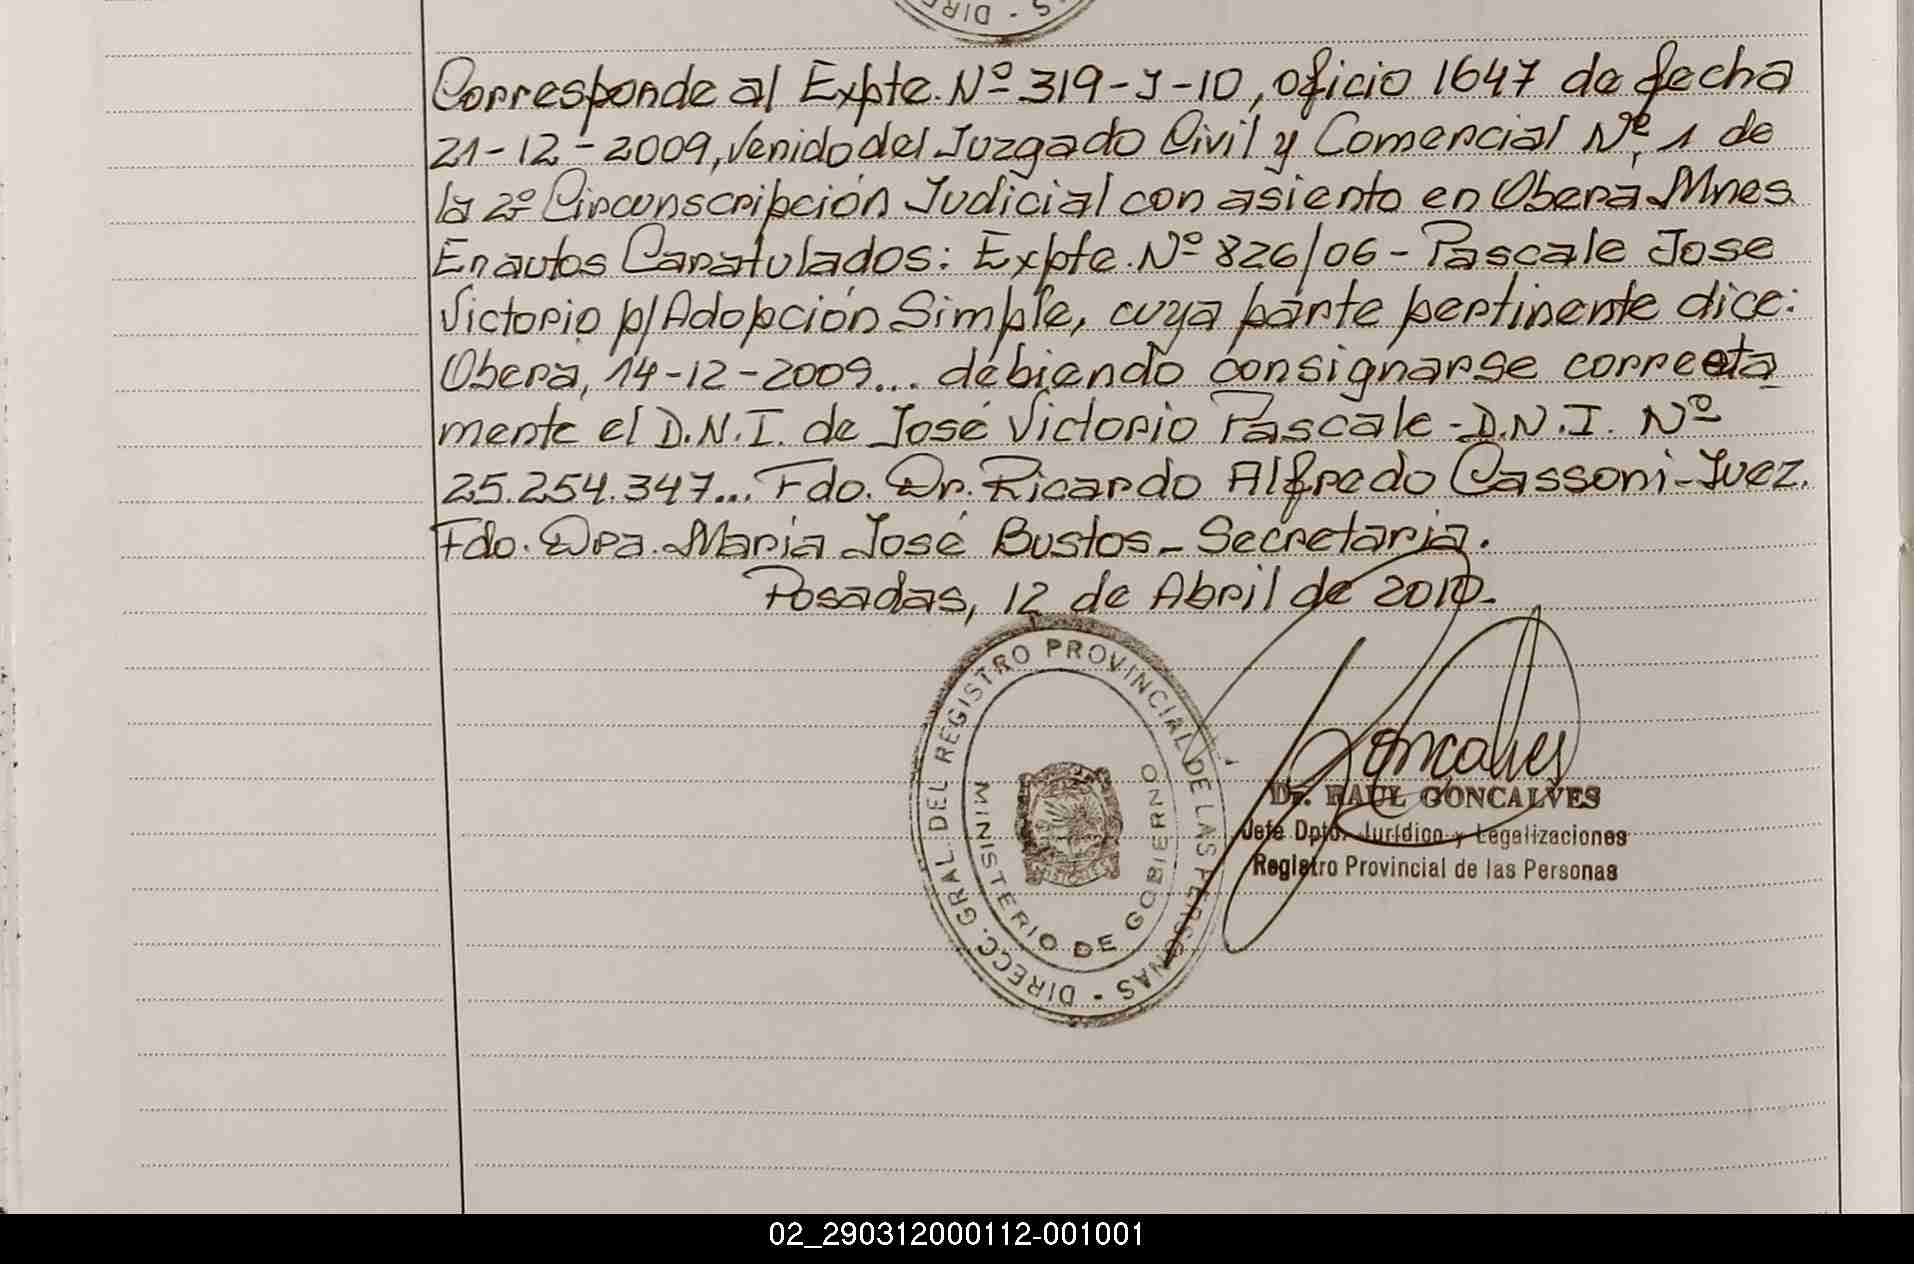 Corresponde al Expte. Nº 319-J-10, oficio 1647 de fecha
21-12-2009, venido del Juzgado Civil y Comercial Nº 1 de
la 2º Circunscripción Judicial con asiento en Oberá Mnes.
En autos Caratulados: Expte. Nº 826/06 - Pascale Jose
Victorio p/Adopción Simple, cuya parte pertinente dice:
Oberá, 14-12-2009... debiendo consignarse correcta
mente el D.N.I. de José Victorio Pascale - D.N.I. Nº
25.254.347... Fdo. Dr. Ricardo Alfredo Cassoni - Juez.
Fdo. Dra. María José Bustos - Secretaria.
Posadas, 12 de Abril de 2010.-
DIRECC. GRAL. DEL REGISTRO PROVINCIAL DE LAS PERSONAS -
MINISTERIO DE GOBIERNO
Goncalves
Dr. RAUL GONCALVES
Jefe Dpto. Jurídico y Legalizaciones
Registro Provincial de las Personas
02_290312000112-001001